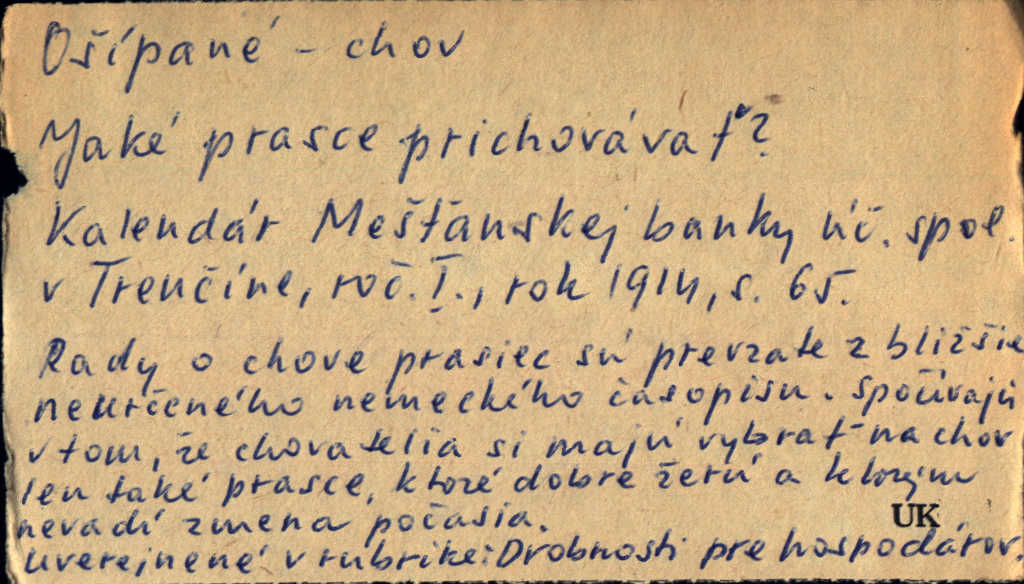 Ošípané - chov
Jaké prasce prichovávať?
Kalendár Mešťanskej banky úč. spol.
v Trenčíne, roč. I., rok 1914, s. 65.
Rady o chove prasiec sú prevzate z bližšie
neurčeného nemeckého časopisu. Spočívajú
v tom, že chovatelia si majú vybrať na chov
len také prasce, ktoré dobre žerú a ktorým
nevadí zmena počasia.
UK
Uverejnené v rubrike: Drobnosti pre hospodárov.